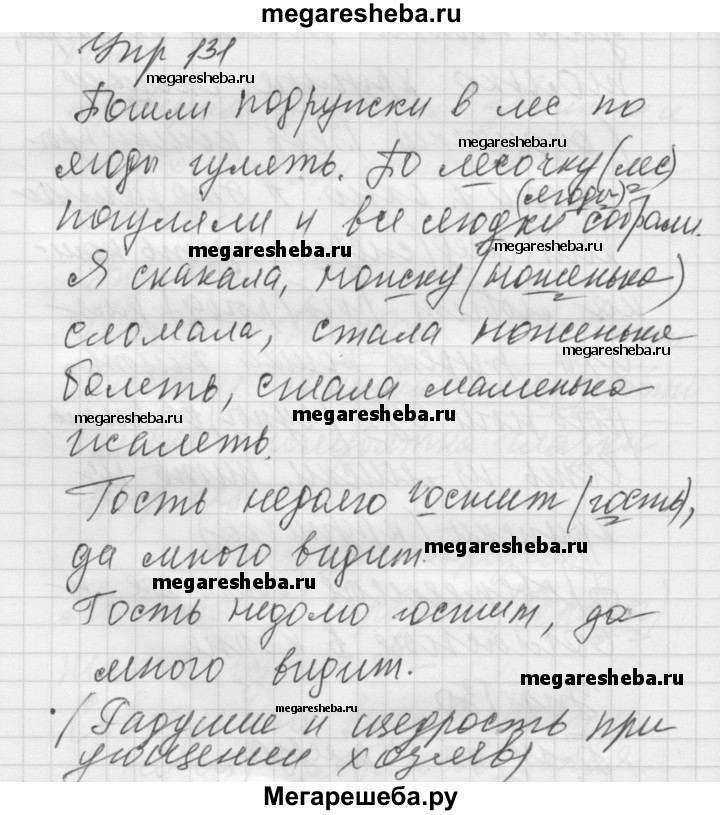 megaresheba.ru
Упр 131
megaresheba.ru
Пошли подружки в лес по
megaresheba.ru
ягоды гулять. По лесочку (лес)
(ягоды)
погуляли и все ягодки собрали.
megaresheba.ru
megaresheba.ru
Я скакала, ножку (ноженька)
megaresheba.ru
сломала, стала ноженька
megaresheba.ru
болеть, стала маменька
megaresheba.ru
megaresheba.ru
жалеть.
Гость недолго гостит (гость),
да много видит.
megaresheba.ru
megaresheba.ru
Гость недомо гостит, да
много видит.
megaresheba.ru
megaresheba.ru
(Радушие и щедрость при
угощении хозяев)
Мегарешеба.ру